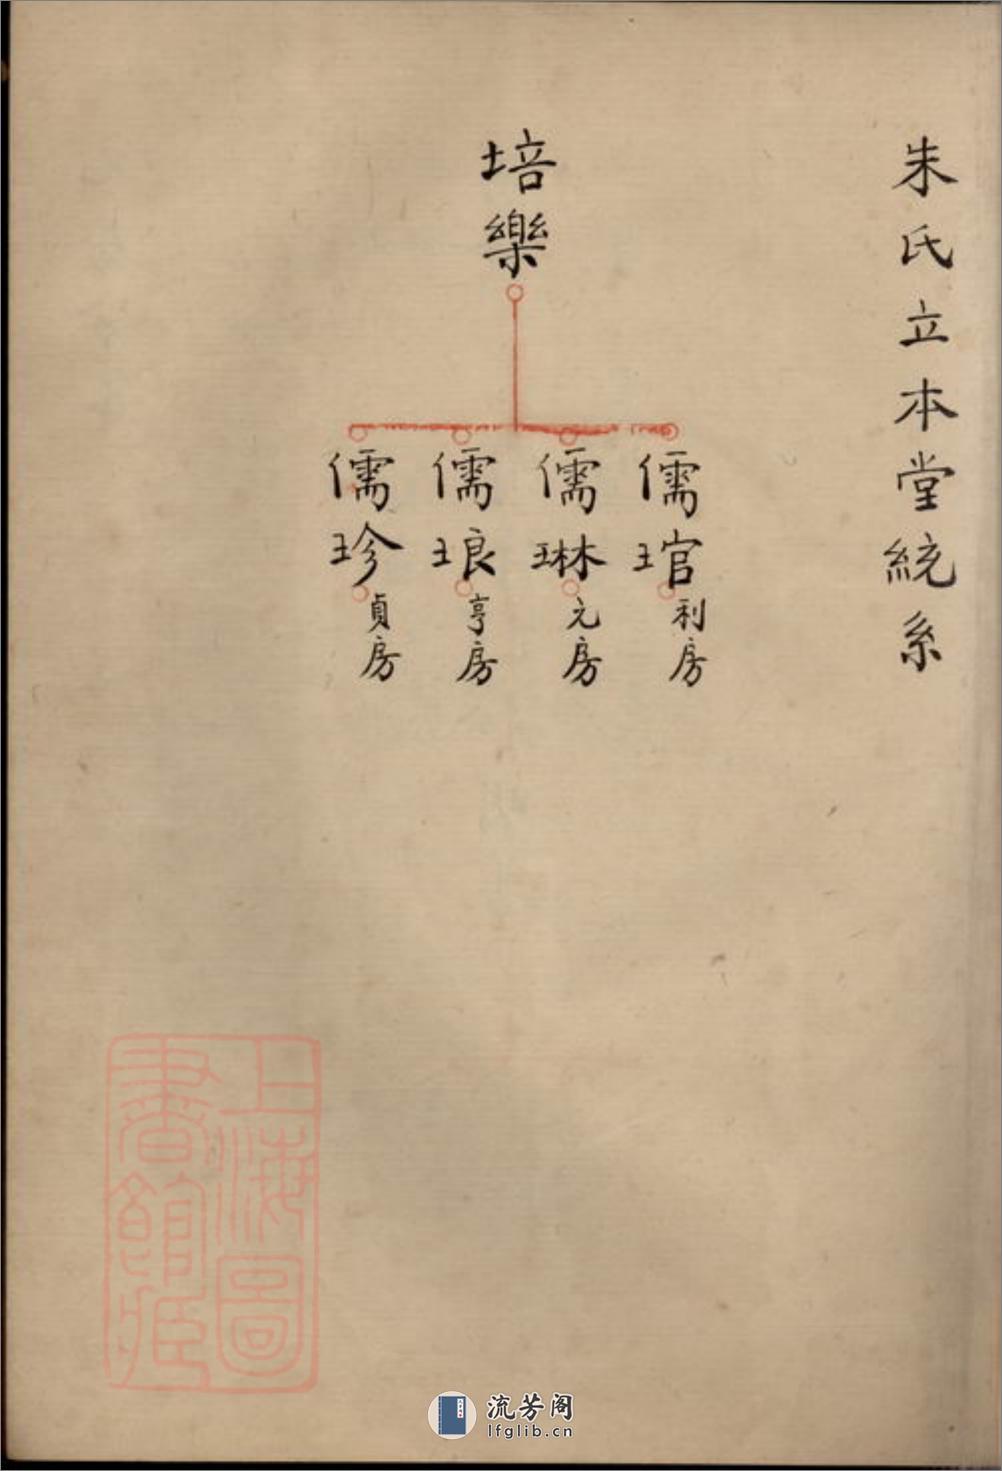 朱氏立本堂統系
培樂
儒琯
利房
儒琳
元房
儒琅
亨房
儒珍
貞房
上海圖
書館藏
流芳阁
lfglib.cn